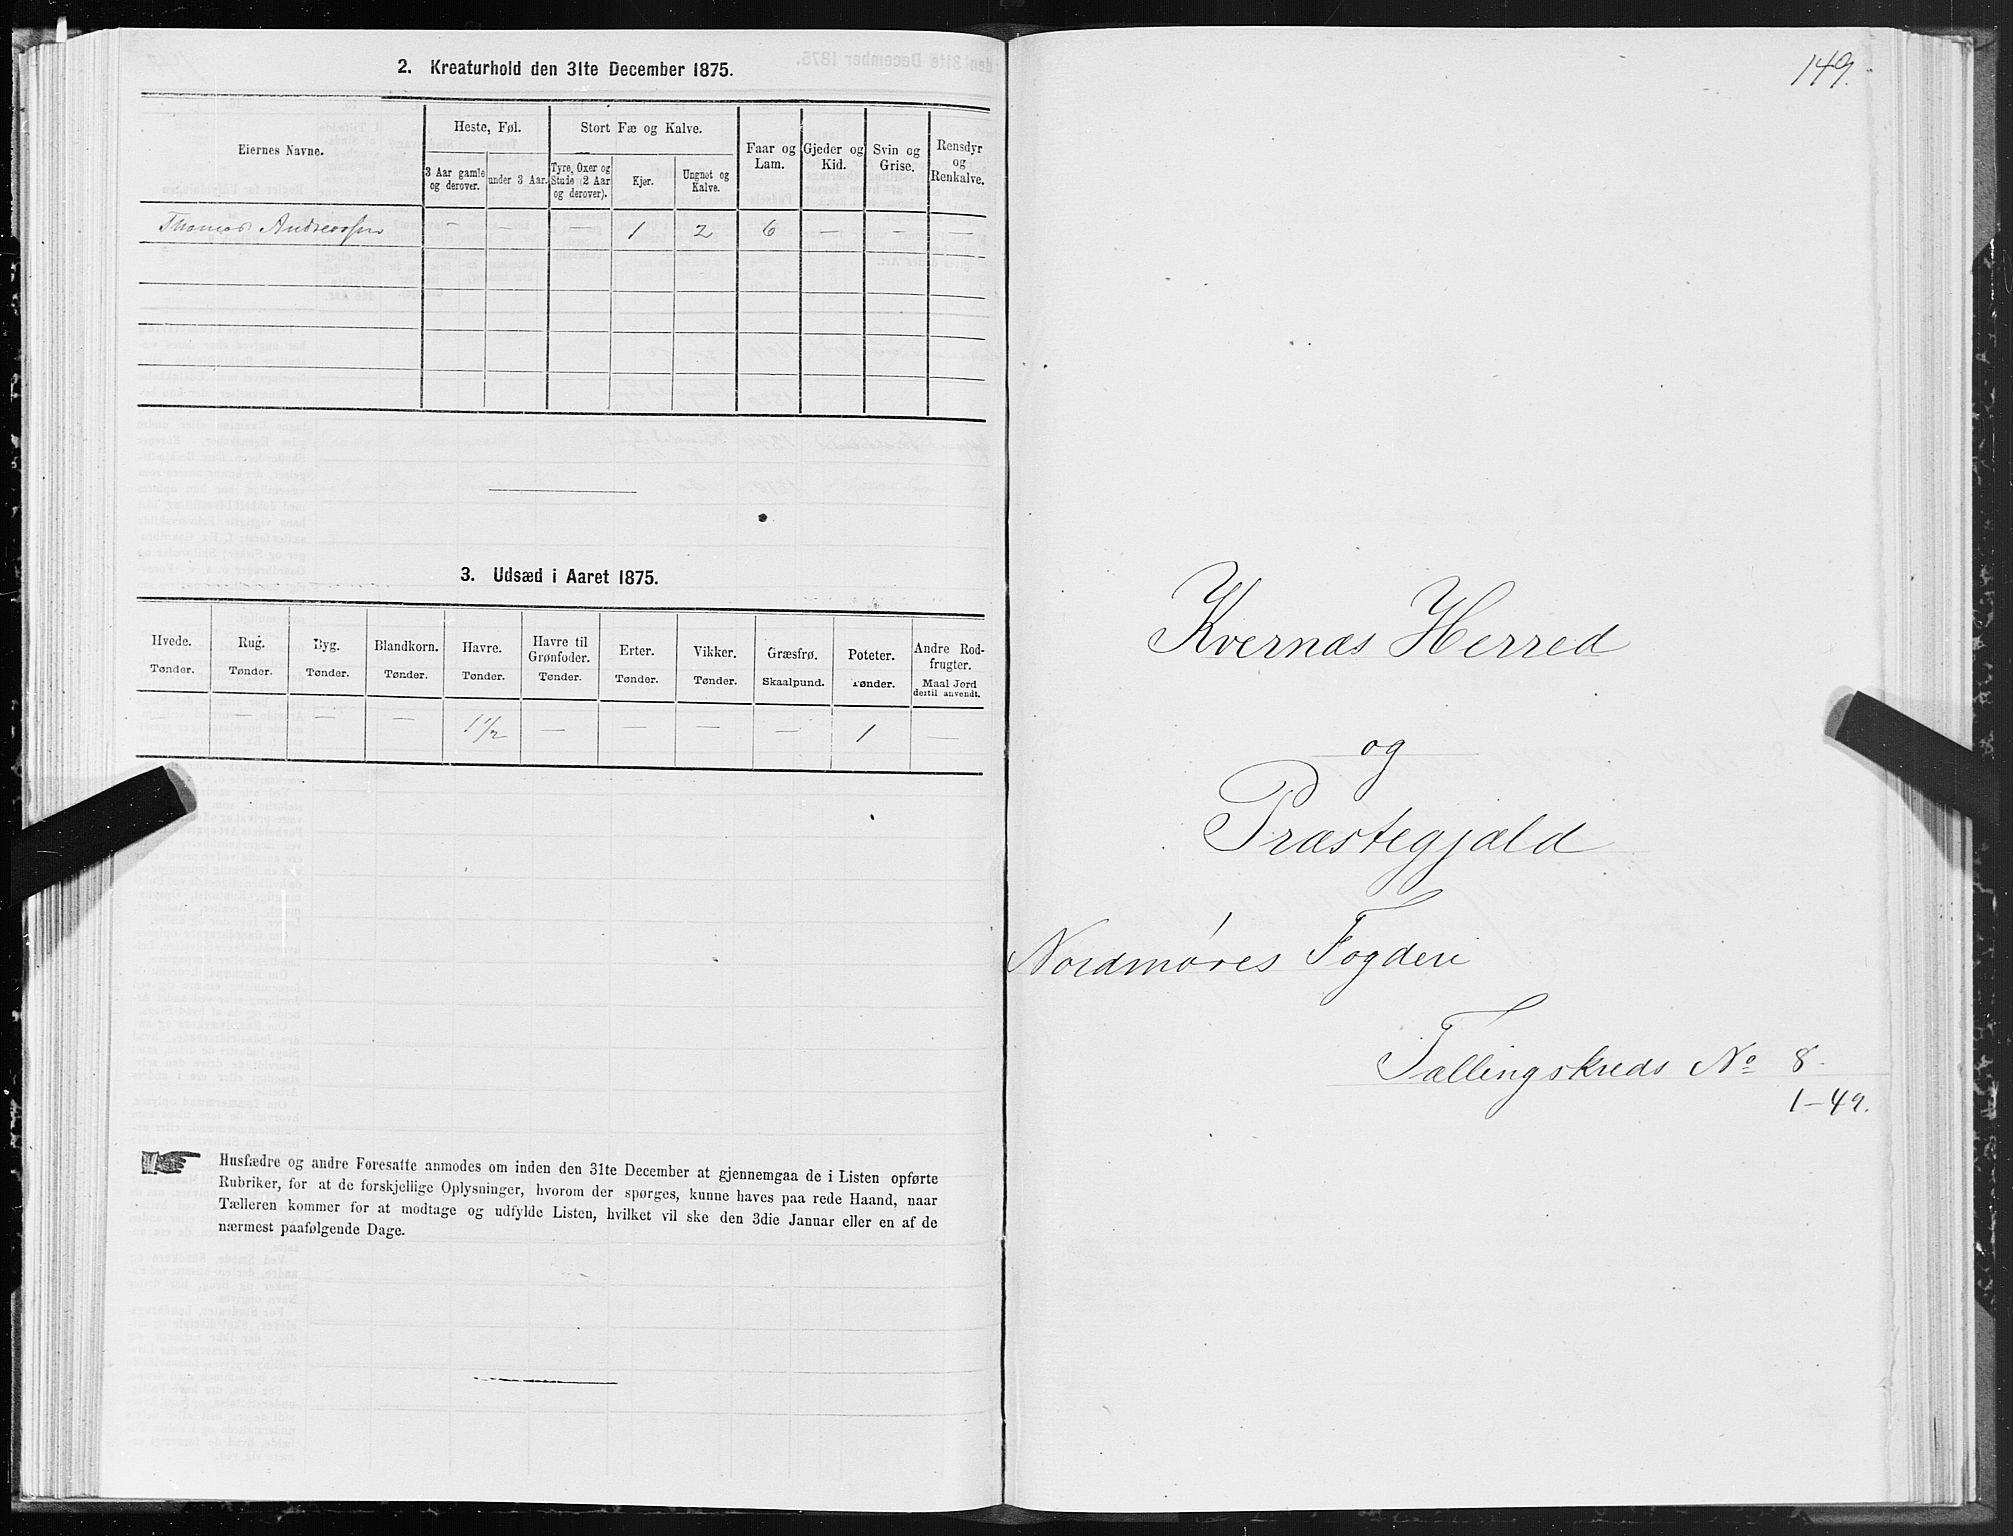 2. Kreaturhold den 31te December 1875.
Eiernes Navne.
Heste, Føl.
Stort Fæ og Kalve.
Faar og Lam.
Gjeder og Kid.
Svin og Grise.
Rensdyr og Renkalve.
3 Aar gamle og derover.
under 3 Aar.
Tyre, Oxer og Stude (2 Aar og derover).
Kjør.
Ungnøt og Kalve.
Thomas Andreassen — — — 1 2 6 — — —
3. Udsæd i Aaret 1875.
Hvede. Rug. Byg. Blandkorn. Havre. Havre til Grønfoder. Erter. Vikker. Græsfrø. Poteter. Andre Rodfrugter.
Tønder. Tønder. Tønder. Tønder. Tønder. Tønder. Tønder. Tønder. Skaalpund. Tønder. Maal Jord dertil anvendt.
— — — — 1 1/2 — — — — 1 —
Husfædre og andre Foresatte anmodes om inden den 31te December at gjennemgaa de i Listen opførte
Rubriker, for at de forskjellige Oplysninger, hvorom der spørges, kunne haves paa rede Haand, naar
Tælleren kommer for at modtage og udfylde Listen, hvilket vil ske den 3die Januar eller en af de
nærmest paafølgende Dage.
149.
Kvernæs Herred
og
Præstegjæld
Nordmøres Fogderi
Tællingskreds No 8
1-49.